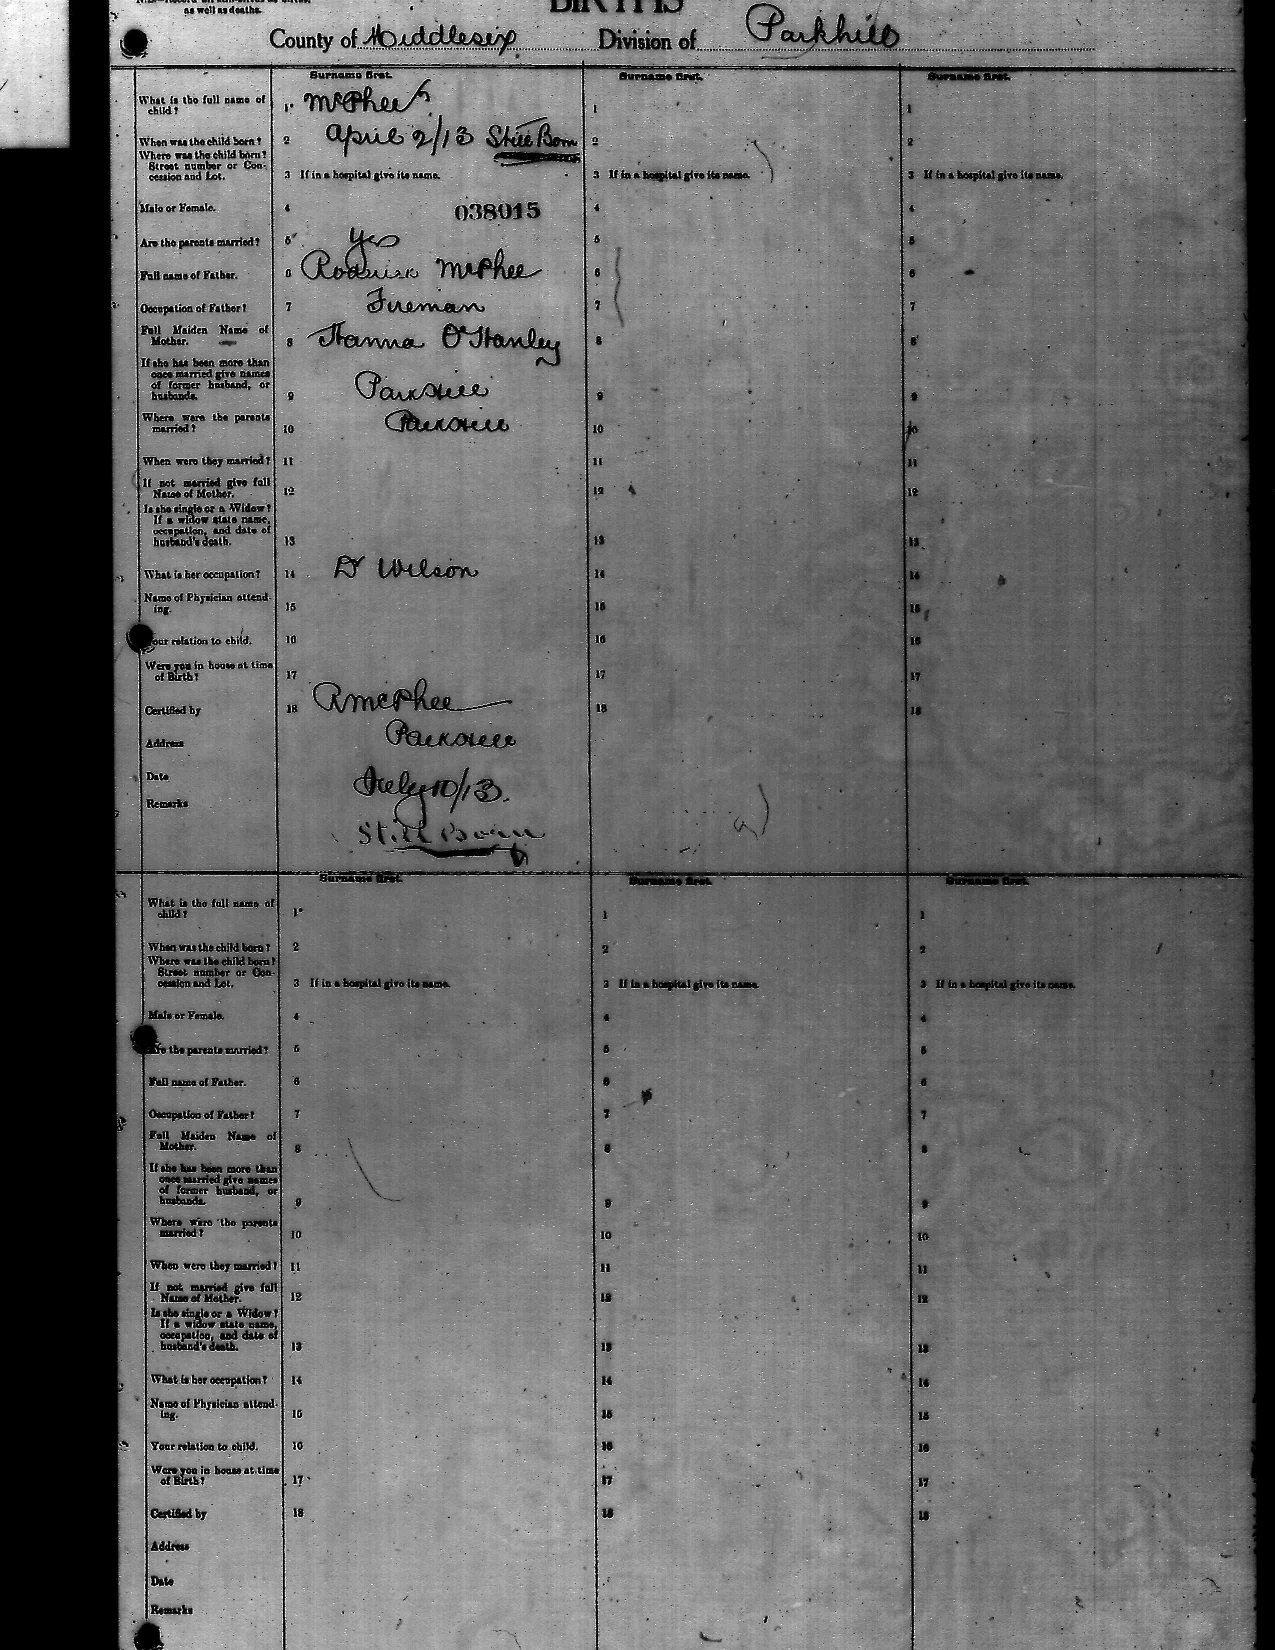 as well as deaths.
BIRTHS
County of Middlesex Division of Parkhill
Surname first. Surname first. Surname first.
What is the full name of child? 1 McPhee 1 1
When was the child born? 2 April 2/13 Still Born 2 2
Where was the child born? Street number or Concession and Lot. 3 If in a hospital give its name. 3 If in a hospital give its name. 3 If in a hospital give its name.
Male or Female. 4 038015 4 4
Are the parents married? 5 Yes 5 5
Full name of Father. 6 Roderick McPhee 6 6
Occupation of Father? 7 Fireman 7 7
Full Maiden Name of Mother. 8 Hanna O'Hanley 8 8
If she has been more than once married give names of former husband, or husbands. 9 Parkhill 9 9
Where were the parents married? 10 Parkhill 10 10
When were they married? 11 11 11
If not married give full Name of Mother. 12 12 12
Is she single or a Widow? If a widow state name, occupation, and date of husband's death. 13 13 13
What is her occupation? 14 Dr Wilson 14 14
Name of Physician attending. 15 15 15
Your relation to child. 16 16 16
Were you in house at time of Birth? 17 17 17
Certified by 18 R McPhee 18 18
Address Parkhill
Date July 10/13.
Remarks Still Born
Surname first. Surname first. Surname first.
What is the full name of child? 1 1 1
When was the child born? 2 2 2
Where was the child born? Street number or Concession and Lot. 3 If in a hospital give its name. 3 If in a hospital give its name. 3 If in a hospital give its name.
Male or Female. 4 4 4
Are the parents married? 5 5 5
Full name of Father. 6 6 6
Occupation of Father? 7 7 7
Full Maiden Name of Mother. 8 8 8
If she has been more than once married give names of former husband, or husbands. 9 9 9
Where were the parents married? 10 10 10
When were they married? 11 11 11
If not married give full Name of Mother. 12 12 12
Is she single or a Widow? If a widow state name, occupation, and date of husband's death. 13 13 13
What is her occupation? 14 14 14
Name of Physician attending. 15 15 15
Your relation to child. 16 16 16
Were you in house at time of Birth? 17 17 17
Certified by 18 18 18
Address
Date
Remarks